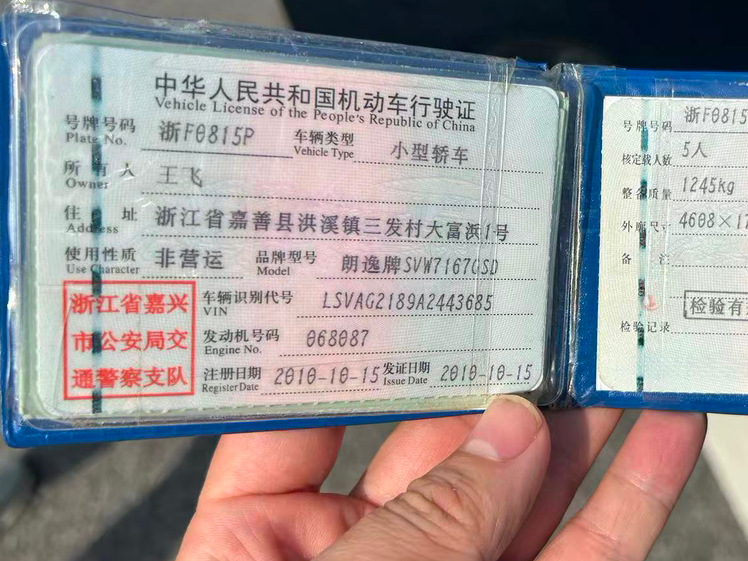 中华人民共和国机动车行驶证
Vehicle License of the People's Republic of China
号牌号码 浙F0815P 车辆类型 小型轿车
Plate No. Vehicle Type
所有人 王飞
Owner
住址 浙江省嘉善县洪溪镇三发村大富浜1号
Address
使用性质 非营运 品牌型号 朗逸牌SVW7167GSD
Use Character Model
浙江省嘉兴
市公安局交
通警察支队
车辆识别代号 LSVAG2189A2443685
VIN
发动机号码 068087
Engine No.
注册日期 2010-10-15 发证日期 2010-10-15
Register Date Issue Date
号牌号码 浙F0815
核定载人数 5人
整备质量 1245kg
外廓尺寸 4608×17
备注
检验有
检验记录